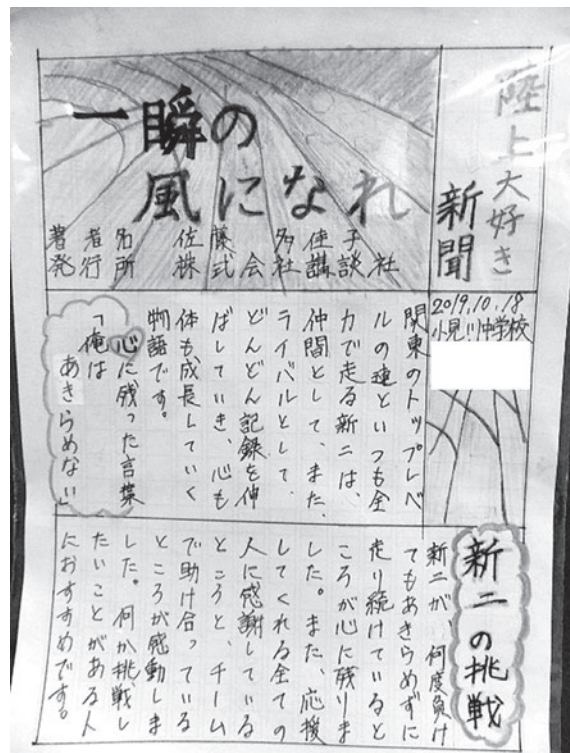 陸上大好き
新聞
2019.10.18
小見川中学校
一瞬の
風になれ
著者名 佐藤多佳子
発行所 株式会社講談社
関東のトップレベ
ルの連といつも全
力で走る新二は、
仲間として、また、
ライバルとして、
どんどん記録を伸
ばしていき、心も
体も成長していく
物語です。
心に残った言葉
「俺は
あきらめない」
新二の挑戦
新二が、何度負け
てもあきらめずに
走り続けていると
ころが心に残りま
した。また、応援
してくれる全ての
人に感謝している
ところと、チーム
で助け合っている
ところが感動しま
した。何か挑戦し
たいことがある人
におすすめです。